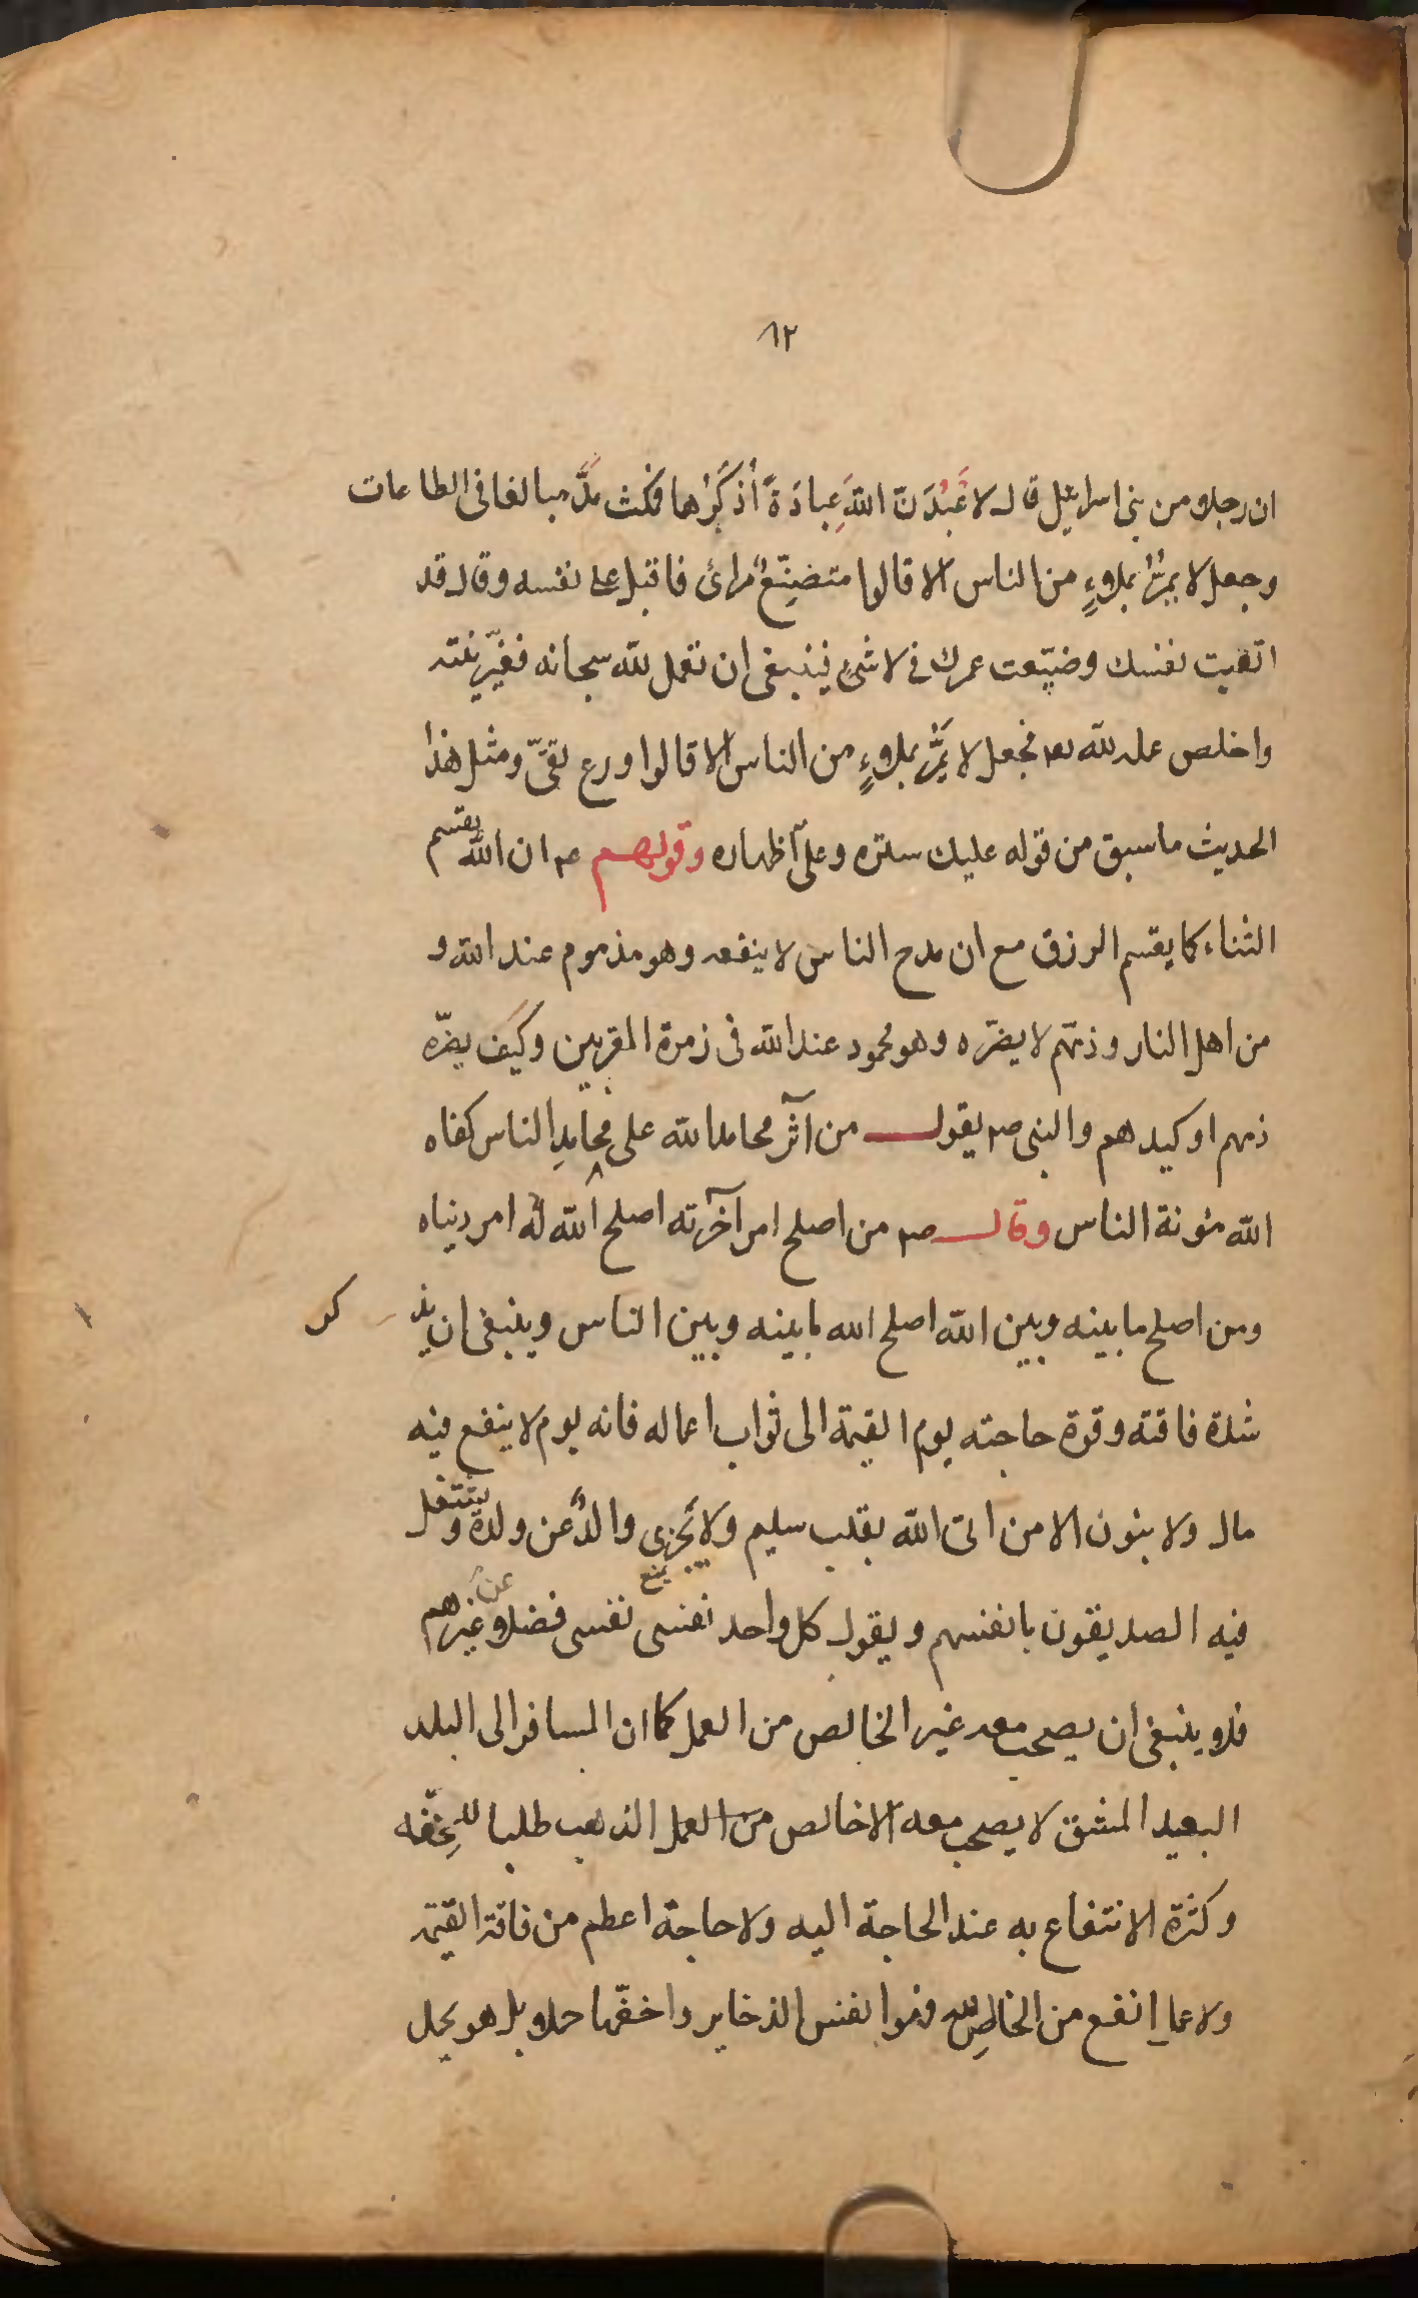 ٨٢
ان رجلا من بنى اسرائيل قال لاعْبُدَنّ اللهَ عِبادَةً أُذكَرُ بها فمكث مدّة مبالغا فى الطاعات
وجعل لا يمرُّ بملاءٍ من الناس الا قالوا متصنِّعٌ مرائ فاقبل على نفسه وقال قد
اتعبت نفسك وضيّعت عمرك فى لا شئ فينبغى ان تعمل لله سبحانه فغيّر نيته
واخلص عمله لله تعه فجعل لا يَمُرّ بملاءٍ من الناس الا قالوا ورع تقىّ ومثل هذا
الحديث ما سبق من قوله عليك ستره وعلىّ اظهاره وقولهم عم ان الله يقسم
الثناء كما يقسم الرزق مع ان مدح الناس لا ينفعه وهو مذموم عند الله و
من اهل النار وذمّهم لا يضرّه وهو محمود عند الله فى زمرة المقربين وكيف يضرّه
ذمهم او كيدهم والنبى صم يقول من آثر محامد الله على محامِدِ الناس كفاه
الله مئونة الناس وقال صم من اصلح امر آخرته اصلح الله له امر دنياه
ومن اصلح ما بينه وبين الله اصلح الله ما بينه وبين الناس وينبغى ان يذ كر
شدة فاقته وقوة حاجته يوم القيمة الى ثواب اعماله فانه يوم لا ينفع فيه
مال ولا بنون الا من اتى الله بقلب سليم ولا يَجزى والدٌ عن ولده ويشتغل
فيه الصديقون بانفسهم ويقول كل واحد نفسى نفسى فضلا عن غيرهم
فلا ينبغى ان يصحب معه غير الخالص من العمل كما ان المسافر الى البلد
البعيد المشق لا يصحب معه الا خالص من العمل الذهب طلبا للخِفّه
وكثرة الانتفاع به عند الحاجة اليه ولا حاجة اعظم من فاقة القيمة
ولا عمل انفع من الخالصِ لله فهو انفس الذخاير واخفّها حملا بل هو يحمل